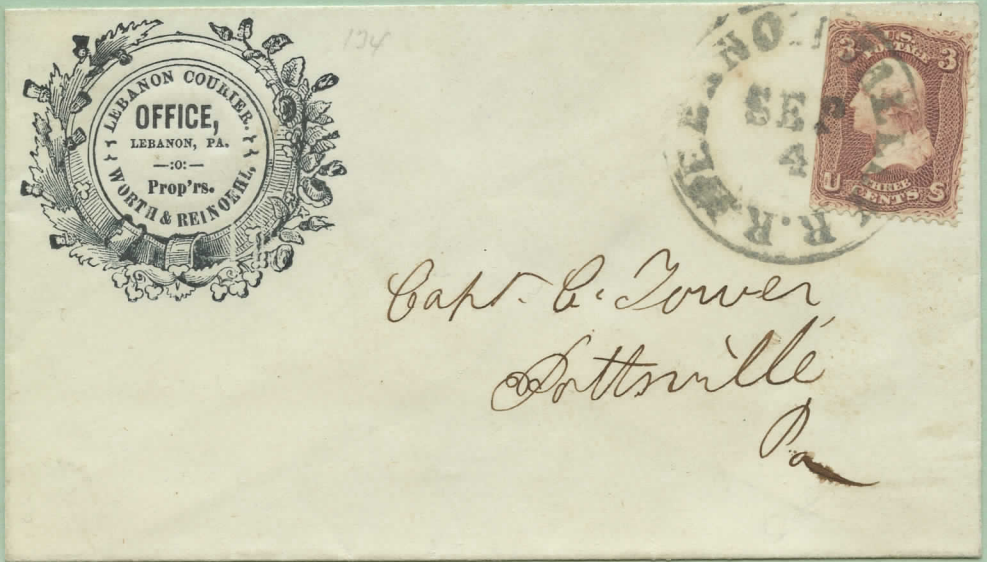 LEBANON COURIER.
OFFICE,
LEBANON, PA.
—:o:—
Prop'rs.
WORTH & REINOEHL,
134
SEP
4
R.R.
3 3
U.S.
POSTAGE
U S
THREE
CENTS
Capt. C. Tower
Pottsville
Pa